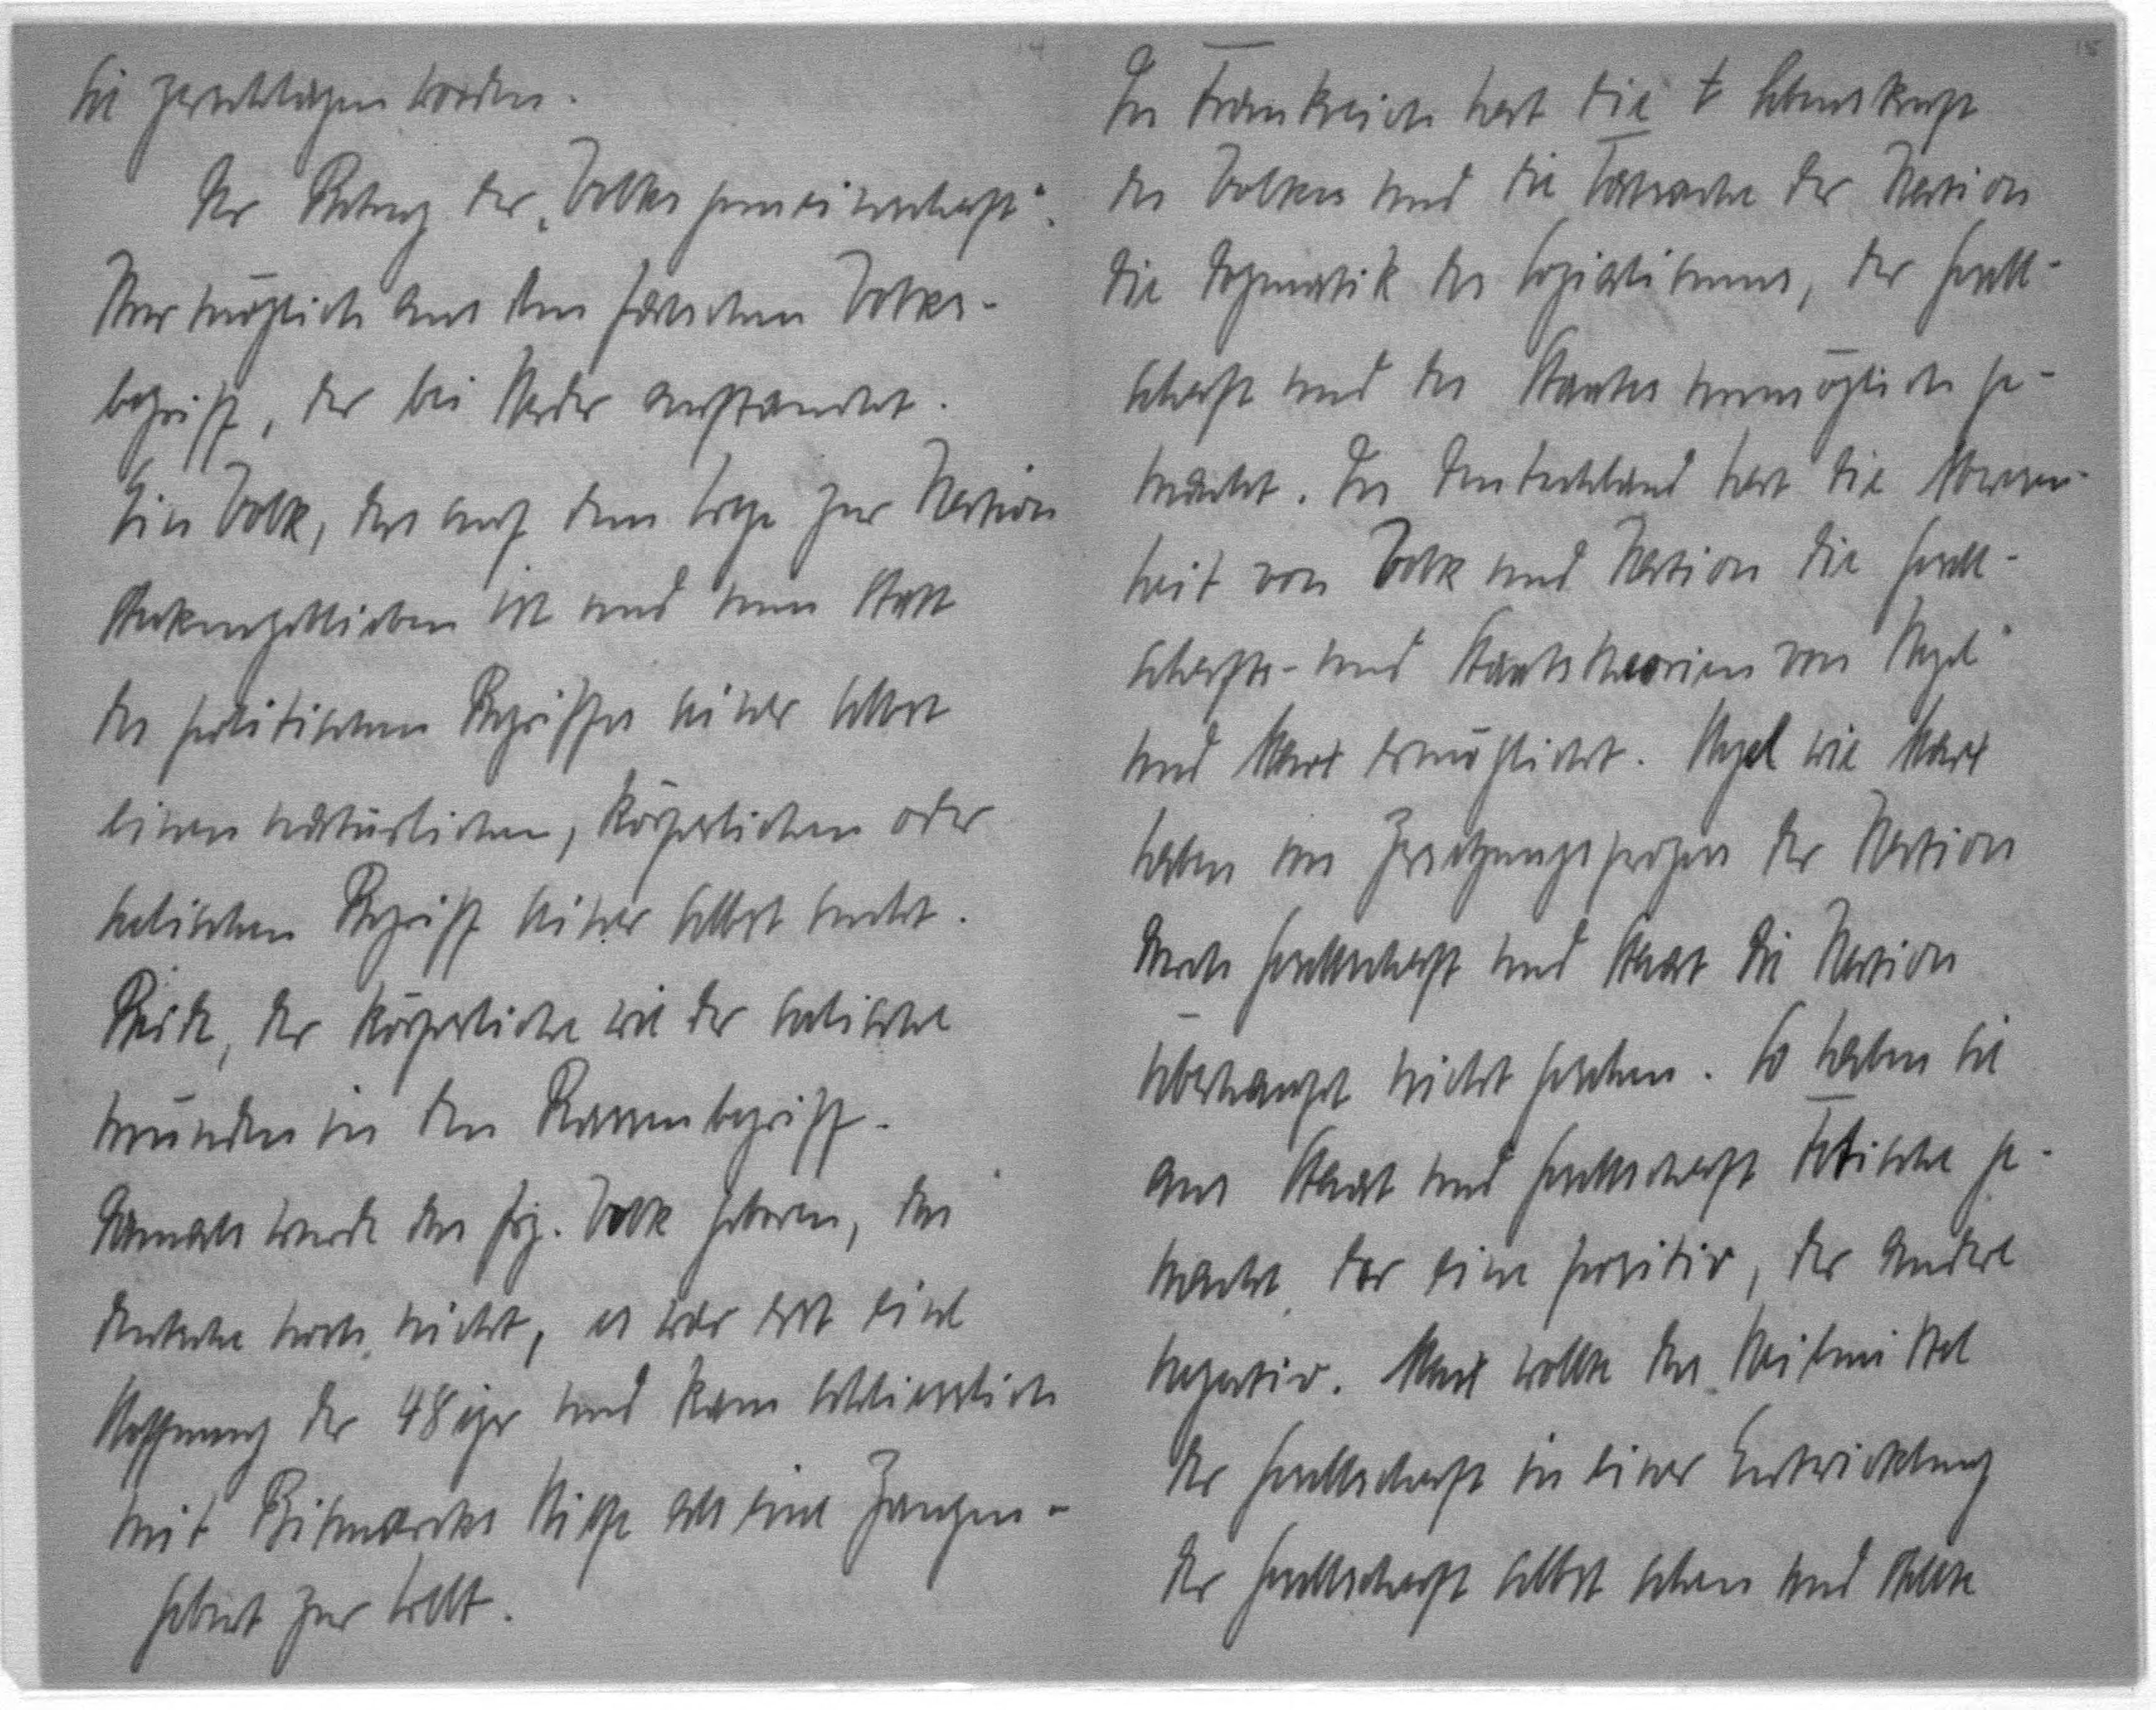 sie zerschlagen worden.
Der Betrug der „Volksgemeinschaft".
Nur möglich aus dem falschen Volks-
begriff, der bei Herder auftaucht.
Ein Volk, das auf dem Wege zur Nation
steckengeblieben ist und nun statt
des politischen Begriffes seiner selbst
einen natürlichen, körperlichen oder
seelischen Begriff seiner selbst sucht.
Beide, der körperliche wie der seelische
münden in den Rassenbegriff.
Damals wurde das frz. Volk geboren, das
deutsche noch nicht, es war erst eine
Hoffnung der 48iger und kam schliesslich
mit Bismarcks Hilfe als eine Zangen-
geburt zur Welt.
15
In Frankreich hat die Lebenskraft
des Volkes und die Tatsache der Nation
die Dogmatik des Sozialismus, der Gesell-
schaft und des Staates unmöglich ge-
macht. In Deutschland hat die Abwesen-
heit von Volk und Nation die Gesell-
schafts- und Staatstheorien von Hegel
und Marx ermöglicht. Hegel wie Marx
haben im Zersetzungsprozess der Nation
durch Gesellschaft und Staat die Nation
überhaupt nicht gesehen. So haben sie
aus Staat und Gesellschaft Fetische ge-
macht, der eine positiv, der andere
negativ. Marx wollte das Heilmittel
der Gesellschaft in einer Entwicklung
der Gesellschaft selbst sehen und stellte